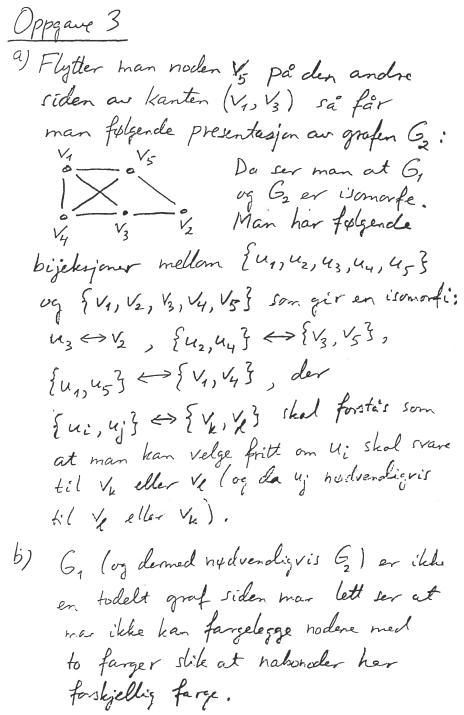 Oppgave 3
a) Flytter man noden V₅ på den andre
siden av kanten (V₁, V₃) så får
man følgende presentasjon av grafen G₂:
V₁ V₅ Da ser man at G₁
og G₂ er isomorfe.
V₄ V₃ V₂ Man har følgende
bijeksjoner mellom {u₁, u₂, u₃, u₄, u₅}
og {V₁, V₂, V₃, V₄, V₅} som gir en isomorfi:
u₃ ↔ V₂ , {u₂, u₄} ↔ {V₃, V₅},
{u₁, u₅} ↔ {V₁, V₄} , der
{ui, uj} ↔ {Vk, Vℓ} skal forstås som
at man kan velge fritt om ui skal svare
til Vk eller Vℓ (og da uj nødvendigvis
til Vℓ eller Vk).
b) G₁ (og dermed nødvendigvis G₂) er ikke
en todelt graf siden man lett ser at
man ikke kan fargelegge nodene med
to farger slik at nabonoder har
forskjellig farge.